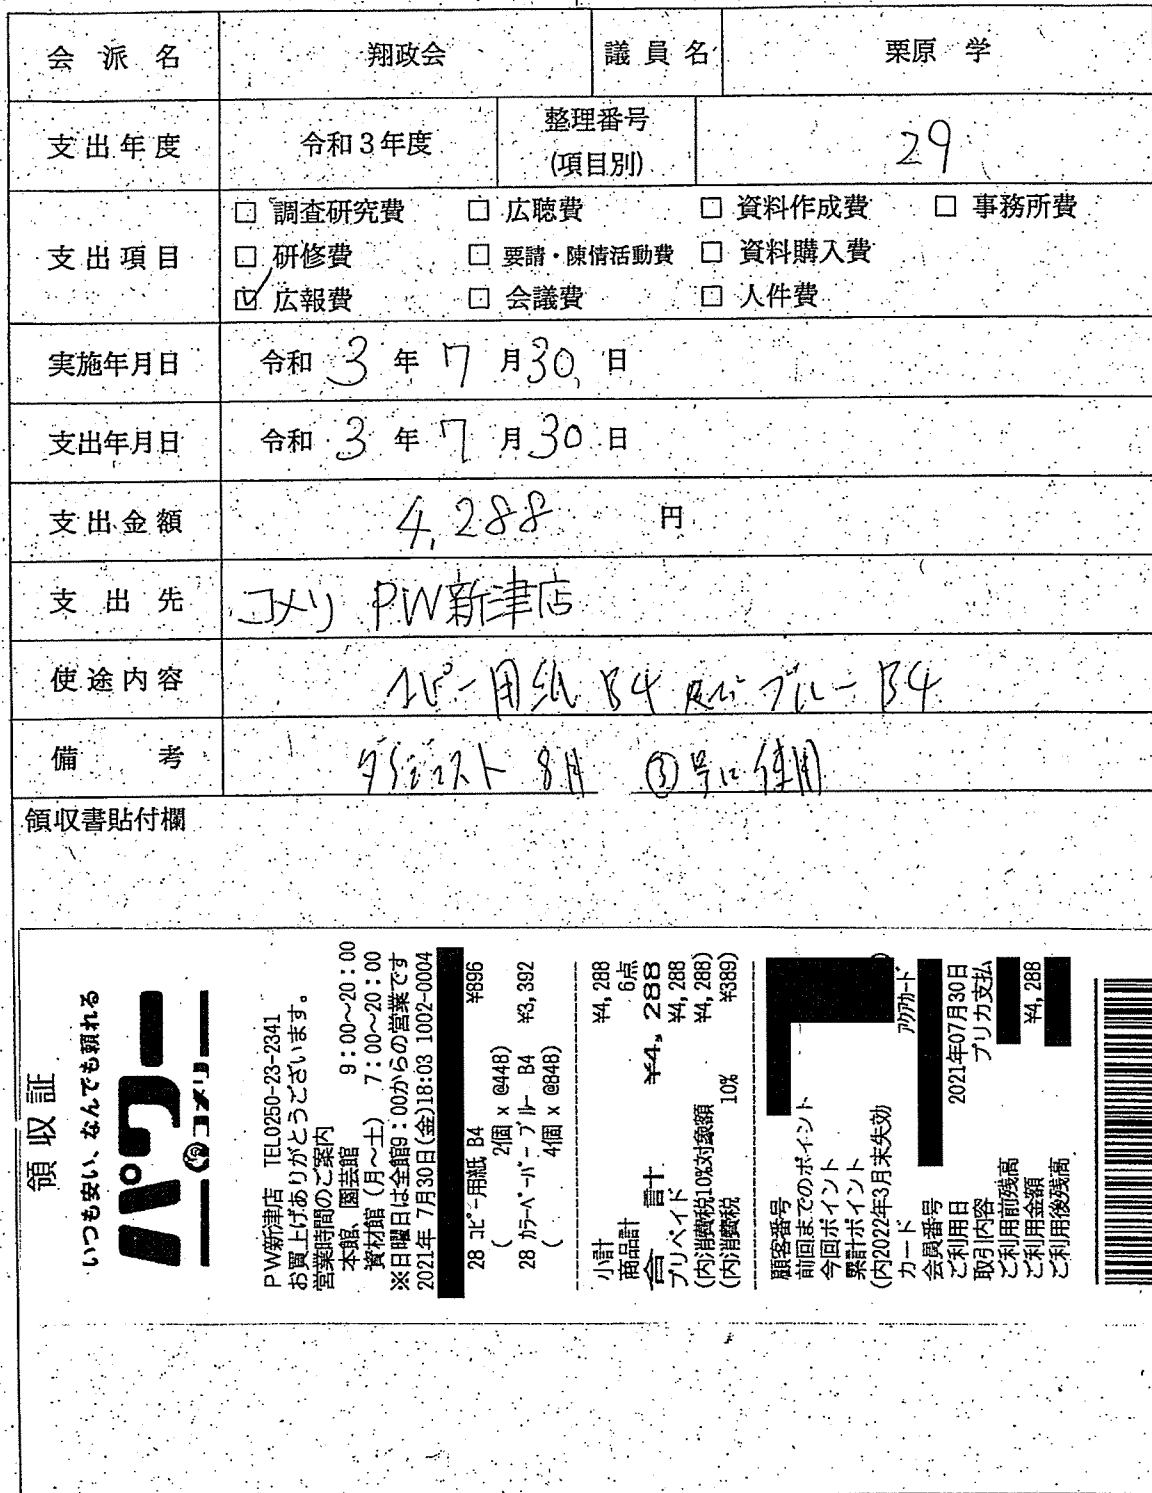 会派名 翔政会 議員名 栗原 学
支出年度 令和3年度 整理番号(項目別) 29
支出項目
□ 調査研究費 □ 広聴費 □ 資料作成費 □ 事務所費
□ 研修費 □ 要請・陳情活動費 □ 資料購入費
☑ 広報費 □ 会議費 □ 人件費
実施年月日 令和 3 年 7 月 30 日
支出年月日 令和 3 年 7 月 30 日
支出金額 4,288 円
支出先 コメリ PW新津店
使途内容 コピー用紙 B4 及び ブルー B4
備考 ダイジェスト 8月 ③号に使用
領収書貼付欄
領収証
いつも安い、なんでも頼れる
パワー
コメリ
PW新津店 TEL0250-23-2341
お買上げありがとうございます。
営業時間のご案内
本館、園芸館 9:00~20:00
資材館(月~土) 7:00~20:00
※日曜日は全館9:00からの営業です
2021年 7月30日(金)18:03 1002-0004
28 コピー用紙 B4 ¥896
( 2個 x @448)
28 カラーペーパー ブルー B4 ¥3,392
( 4個 x @848)
小計 ¥4,288
商品計 6点
合 計 ¥4,288
プリペイド ¥4,288
(内消費税10%対象額 ¥4,288)
(内消費税 10% ¥389)
顧客番号
前回までのポイント
今回ポイント
累計ポイント
(内2022年3月末失効 )
カード アクアカード
会員番号
ご利用日 2021年07月30日
取引内容 プリカ支払
ご利用前残高
ご利用金額 ¥4,288
ご利用後残高